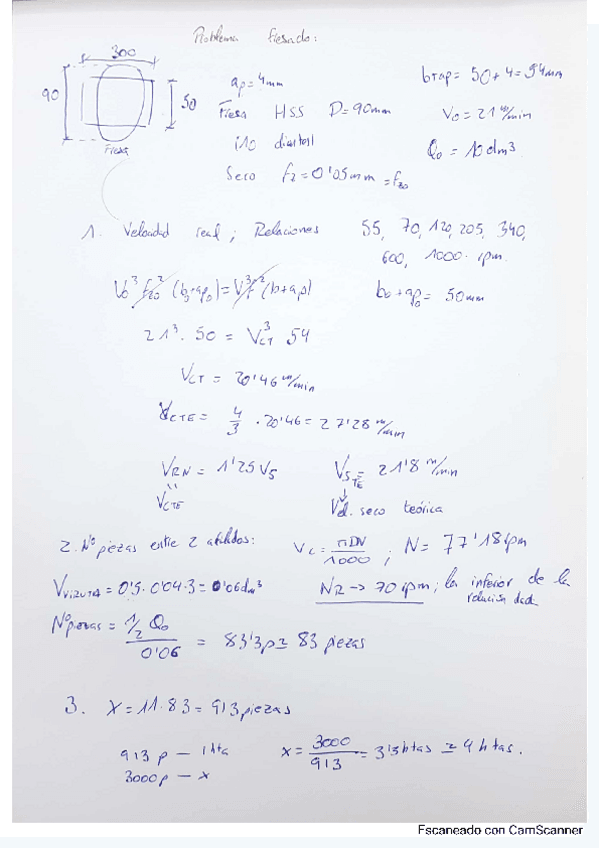 Problema fresado:
300
90
50
Fresa
ap = 4mm
b+ap = 50+4 = 54mm
Fresa HSS D=90mm
V0 = 21 m/min
i10 dientes
Q0 = 10 dm3
Seco fz = 0'05mm = fz0
1. Velocidad real; Relaciones 55, 70, 120, 205, 340,
600, 1000 rpm.
V0^3 fz0^2 (b0+ap0) = V^3 f^2 (b+ap)
b0+ap0 = 50mm
21^3 · 50 = VCT^3 54
VCT = 20'46 m/min
VCTE = 4/3 · 20'46 = 27'28 m/min
VRN = 1'25 VS
VSTE = 21'8 m/min
VCTE
Vel. seco teórica
2. Nº piezas entre 2 afilados:
Vc = πDN/1000 ; N = 77'18 rpm
Vviruta = 0'5 · 0'04 · 3 = 0'06 dm3
NR → 70 rpm; la inferior de la
relación dada.
Nº piezas = 1/2 Q0 / 0'06 = 83'3p ≃ 83 piezas
3. X = 11·83 = 913 piezas
913 p — 1 hta
3000 p — x
x = 3000/913 = 3'3 htas ≃ 4 htas.
Escaneado con CamScanner